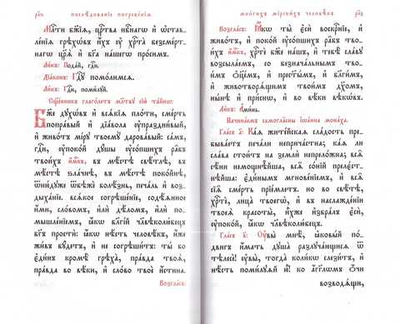 послѣдованїе погребенїѧ
Млⷭ҇ти бж҃їѧ, црⷭ҇тва нбⷭ҇нагѡ и҆ ѡ҆став-
ленїѧ грѣхѡ́въ и҆́хъ ᲂу҆ хрⷭ҇та̀ безсме́рт-
нагѡ цр҃ѧ̀ и҆ бг҃а на́шегѡ про́симъ.
Ли́къ: Пода́й, гдⷭ҇и.
Дїа́конъ: Гдⷭ҇ꙋ помо́лимсѧ.
Ли́къ: Гдⷭ҇и, поми́лꙋй.
Сщ҃е́нникъ глаго́летъ мл҃твꙋ сїю̀ та́йнѡ:
Бж҃е дꙋхѡ́въ и҆ всѧ́кїѧ пло́ти, сме́рть
попра́вый и҆ дїа́вола ᲂу҆праздни́вый,
и҆ живо́тъ мі́рꙋ твоемꙋ̀ дарова́вый: са́мъ,
гдⷭ҇и, ᲂу҆поко́й дꙋ́шы ᲂу҆со́пшихъ ра̑бъ
твои́хъ и҆́м҃къ, въ мѣ́стѣ свѣ́тлѣ, въ
мѣ́стѣ зла́чнѣ, въ мѣ́стѣ поко́йнѣ,
ѿню́дꙋже ѿбѣжѐ болѣ́знь, печа́ль и҆ воз-
дыха́нїе. всѧ́кое согрѣше́нїе, содѣ́ѧнное
и҆́ми, сло́вомъ, и҆лѝ дѣ́ломъ, и҆лѝ по-
мышле́нїемъ, ꙗ҆́кѡ бл҃гі́й чл҃вѣколю́бецъ
бг҃ъ простѝ: ꙗ҆́кѡ нѣ́сть человѣ́къ, и҆́же
жи́въ бꙋ́детъ, и҆ не согрѣши́тъ: ты́ бо
є҆ди́нъ кромѣ̀ грѣха̀, пра́вда твоѧ̀,
пра́вда во вѣ́ки, и҆ сло́во твоѐ и҆́стина.
Возгла́съ:
мно́гихъ мїрски́хъ человѣ́къ
Возгла́съ: Ꙗ҆́кѡ ты̀ є҆сѝ воскрⷭ҇нїе, и҆
живо́тъ, и҆ поко́й ᲂу҆со́пшихъ ра̑бъ тво-
и́хъ и҆́м҃къ, хрⷭ҇тѐ бж҃е на́шъ, и҆ тебѣ̀ сла́вꙋ
возсыла́емъ, со безнача́льнымъ твои́мъ
ѻ҆ц҃е́мъ, и҆ прест҃ы́мъ, и҆ бл҃ги́мъ, и҆
животворѧ́щимъ твои́мъ дх҃омъ,
ны́нѣ и҆ при́снѡ, и҆ во вѣ́ки вѣкѡ́въ.
Ли́къ: А҆ми́нь.
Начина́емъ самогла̑сны і҆ѡа́нна мона́ха.
Гла́съ а҃: Ка́ѧ жите́йскаѧ сла́дость пре-
быва́етъ печа́ли неприча́стна; ка́ѧ ли
сла́ва стои́тъ на землѝ непрело́жна; всѧ̑
сѣ́ни немощнѣ̑йша, всѧ̑ со́нїй преле́ст-
нѣйша: є҆ди́нѣмъ мгнове́нїемъ, и҆ всѧ̑
сїѧ̑ сме́рть прїе́млетъ. но во свѣ́тѣ,
хрⷭ҇тѐ, лица̀ твоегѡ̀, и҆ въ наслажде́нїи
твоеѧ̀ красоты̀, и҆́хже и҆збра́лъ є҆сѝ,
ᲂу҆поко́й, ꙗ҆́кѡ чл҃вѣколю́бецъ.
Гла́съ в҃: Оу҆вы̀ мнѣ̀, ꙗ҆ковы́й по́-
двигъ и҆́мать дꙋша̀ разлꙋча́ющисѧ ѿ
тѣлесѐ; ᲂу҆вы̀, тогда̀ коли́кѡ слези́тъ, и҆
нѣ́сть поми́лꙋѧй ю҆̀; ко а҆́гг҃лѡмъ ѻ҆́чи
возводѧ́щи,